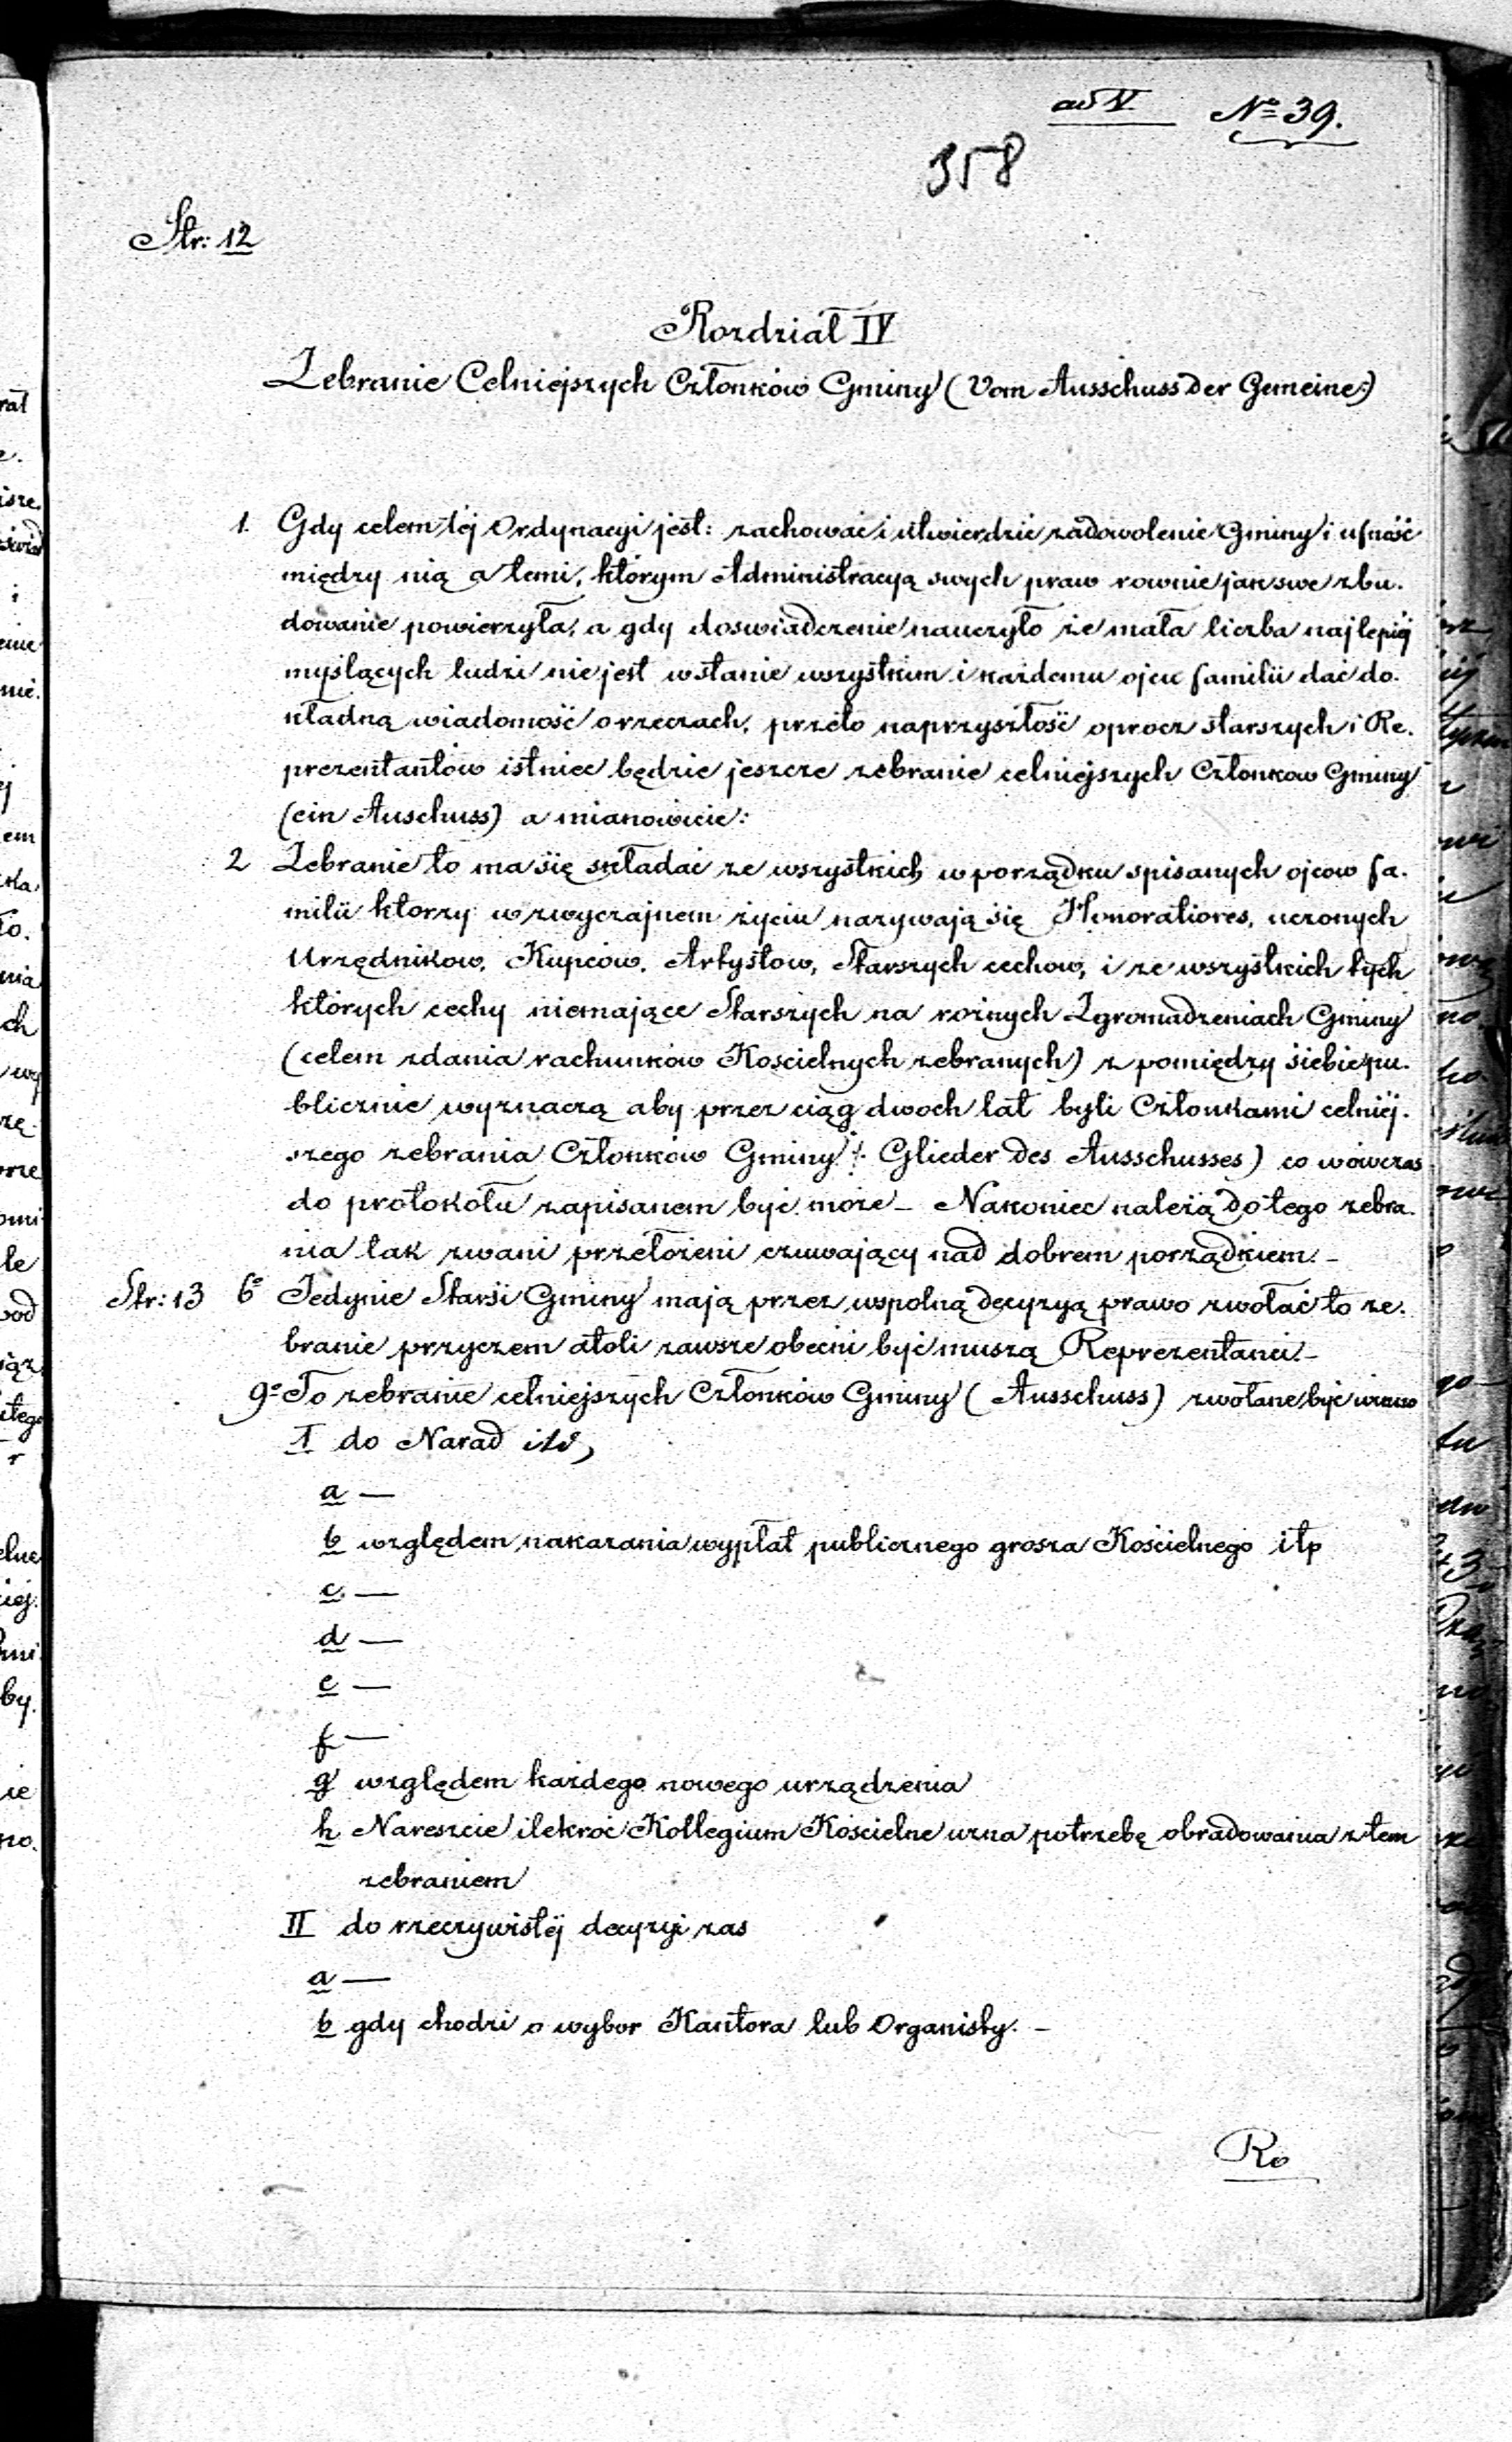 ad V. No 39.
358
Str: 12
Rozdział IV
Zebranie Celniejszych Członków Gminy (Vom Ausschuss der Gemeine:)
1. Gdy celem téj Ordynacyi jest: zachować i utwierdzić zadowolenie Gminy i ufność
między nią a temi, którym Administracyą swych praw rownie jak swe zbu-
dowanie powierzyła, a gdy doswiadczenie nauczyło że mała liczba najlepiéj
myślących ludzi nie jest wstanie wszystkim i kazdemu ojcu familii dać do-
kładną wiadomość o rzeczach, przéto naprzyszłość oprocz starszych i Re-
prezentantów istniec będzie jeszcze zebranie celniejszych Członkow Gminy
(ein Auschuss) a mianowicie:
2 Zebranie to ma się składać ze wszystkich w porządku spisanych ojcow fa-
milii ktorzy w zwyczajnem życiu nazywają się Honoratiores, uczonych
Urzędnikow, Kupców, Artystow, Starszych cechow, i ze wszystkich tych
których cechy niemające Starszych na rożnych Zgromadzeniach Gminy
(celem zdania rachunków Kościelnych zebranych) z pomiędzy siebie pu-
blicznie wyznaczą aby przez ciąg dwoch lat byli Członkami celniéj-
szego zebrania Członków Gminy (: Glieder des Ausschusses) co wówczas
do protokołu zapisanem być może – Nakoniec należą do tego zebra-
nia tak zwani przełożeni czuwający nad dobrem porządkiem. –
Str: 13 6o Jedynie Starsi Gminy mają przez wspolną decyzyą prawo zwołać to ze-
branie przyczem atoli zawsze obecni być muszą Reprezentanci. –
9o To zebranie celniejszych Członków Gminy (Ausschuss) zwołane być winno
I do Narad itd,
a —
b względem nakazania wypłat publicznego grosza Kościelnego itp
c. —
d —
e —
f —
g względem każdego nowego urządzenia
h Nareszcie ilekroć Kollegium Kościelne uzna potrzebę obradowania z tem
zebraniem
II do rzeczywistéj decyzyi zas
a —
b gdy chodzi o wybor Kantora lub Organisty. –
Ro